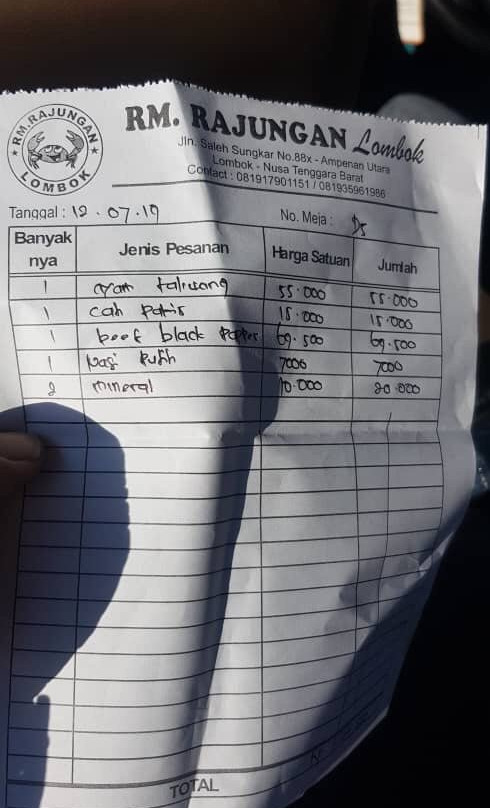 RM. RAJUNGAN
LOMBOK
RM. RAJUNGAN Lombok
Jln. Saleh Sungkar No.88x - Ampenan Utara
Lombok - Nusa Tenggara Barat
Contact : 081917901151 / 081935961986
Tanggal : 12 . 07 . 19 No. Meja :
Banyak nya Jenis Pesanan Harga Satuan Jumlah
1 ayam taliwang 55.000 55.000
1 cah 15.000 15.000
1 beef black 69.500 69.500
1 Nasi Putih 7000 7000
2 mineral 10.000 20.000
TOTAL